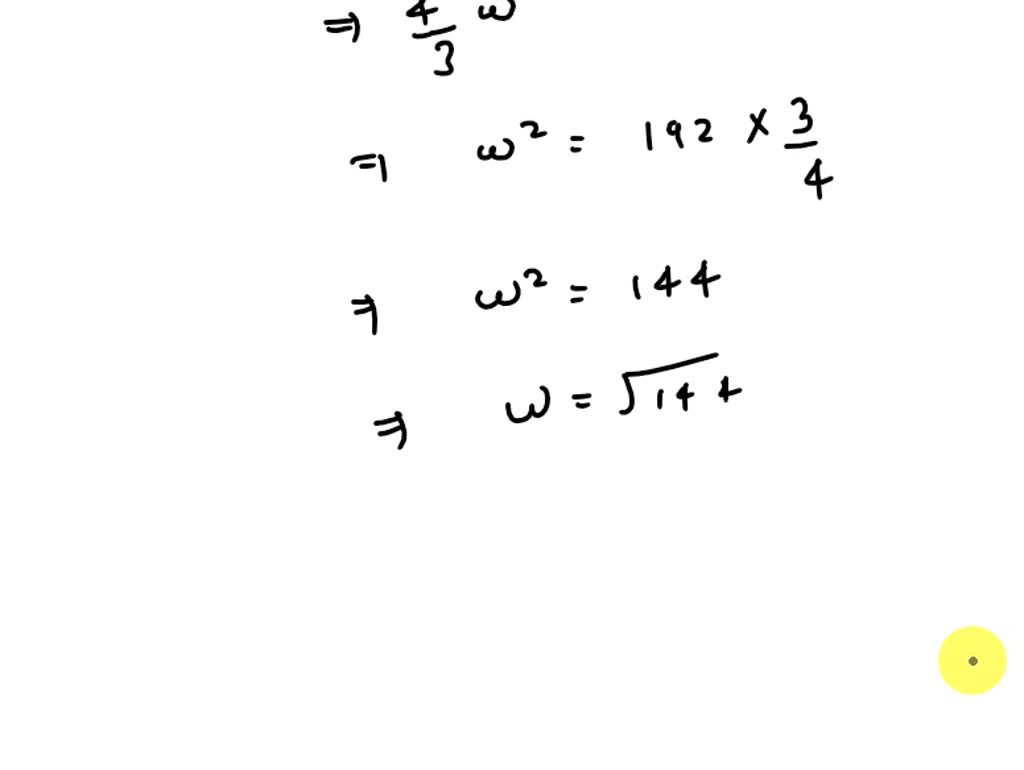 ⇒ 4/3 ω
⇒ ω² = 192 × 3/4
⇒ ω² = 144
⇒ ω = √144